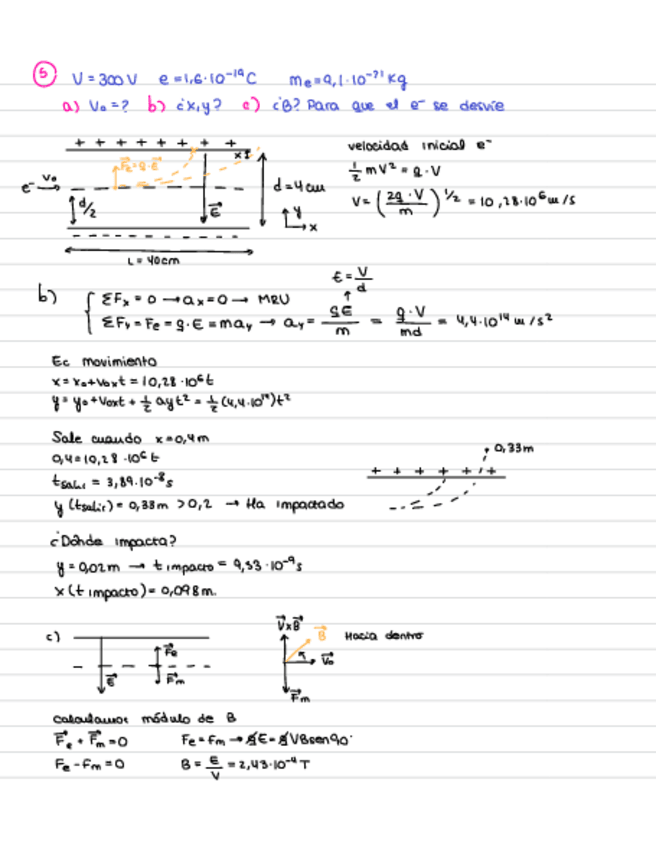 ⑤ V = 300 V e = 1,6·10⁻¹⁹ C me = 9,1·10⁻³¹ Kg
a) V₀ = ? b) ¿x,y? c) ¿B? Para que el e⁻ se desvíe
+ + + + + + + +
x I
F⃗e = q·E⃗
e⁻ V₀
d/2
E⃗
d = 4 cm
y
x
L = 40cm
velocidad inicial e⁻
½ mV² = q·V
V = (2q·V / m)^1/2 = 10,28·10⁶ m/s
b)
E = V/d
ΣFx = 0 → ax = 0 → MRU
ΣFy = Fe = q·E = may → ay = qE/m = q·V/md = 4,4·10¹⁴ m/s²
Ec movimiento
x = x₀ + v₀xt = 10,28·10⁶t
y = y₀ + V₀xt + ½ ayt² = ½ (4,4·10¹⁴)t²
Sale cuando x = 0,4m
0,4 = 10,28·10⁶ t
tsalir = 3,89·10⁻⁸ s
y (tsalir) = 0,33m > 0,2 → Ha impactado
0,33m
+ + + + + / +
¿Dónde impacta?
y = 0,02m → t impacto = 9,53·10⁻⁹ s
x (t impacto) = 0,098 m.
c)
F⃗e
E⃗
F⃗m
V⃗xB⃗
B⃗ Hacia dentro
V⃗₀
F⃗m
Calculamos módulo de B
F⃗e + F⃗m = 0 Fe = Fm → qE = qVBsen90°
Fe - Fm = 0 B = E/V = 2,43·10⁻⁴ T